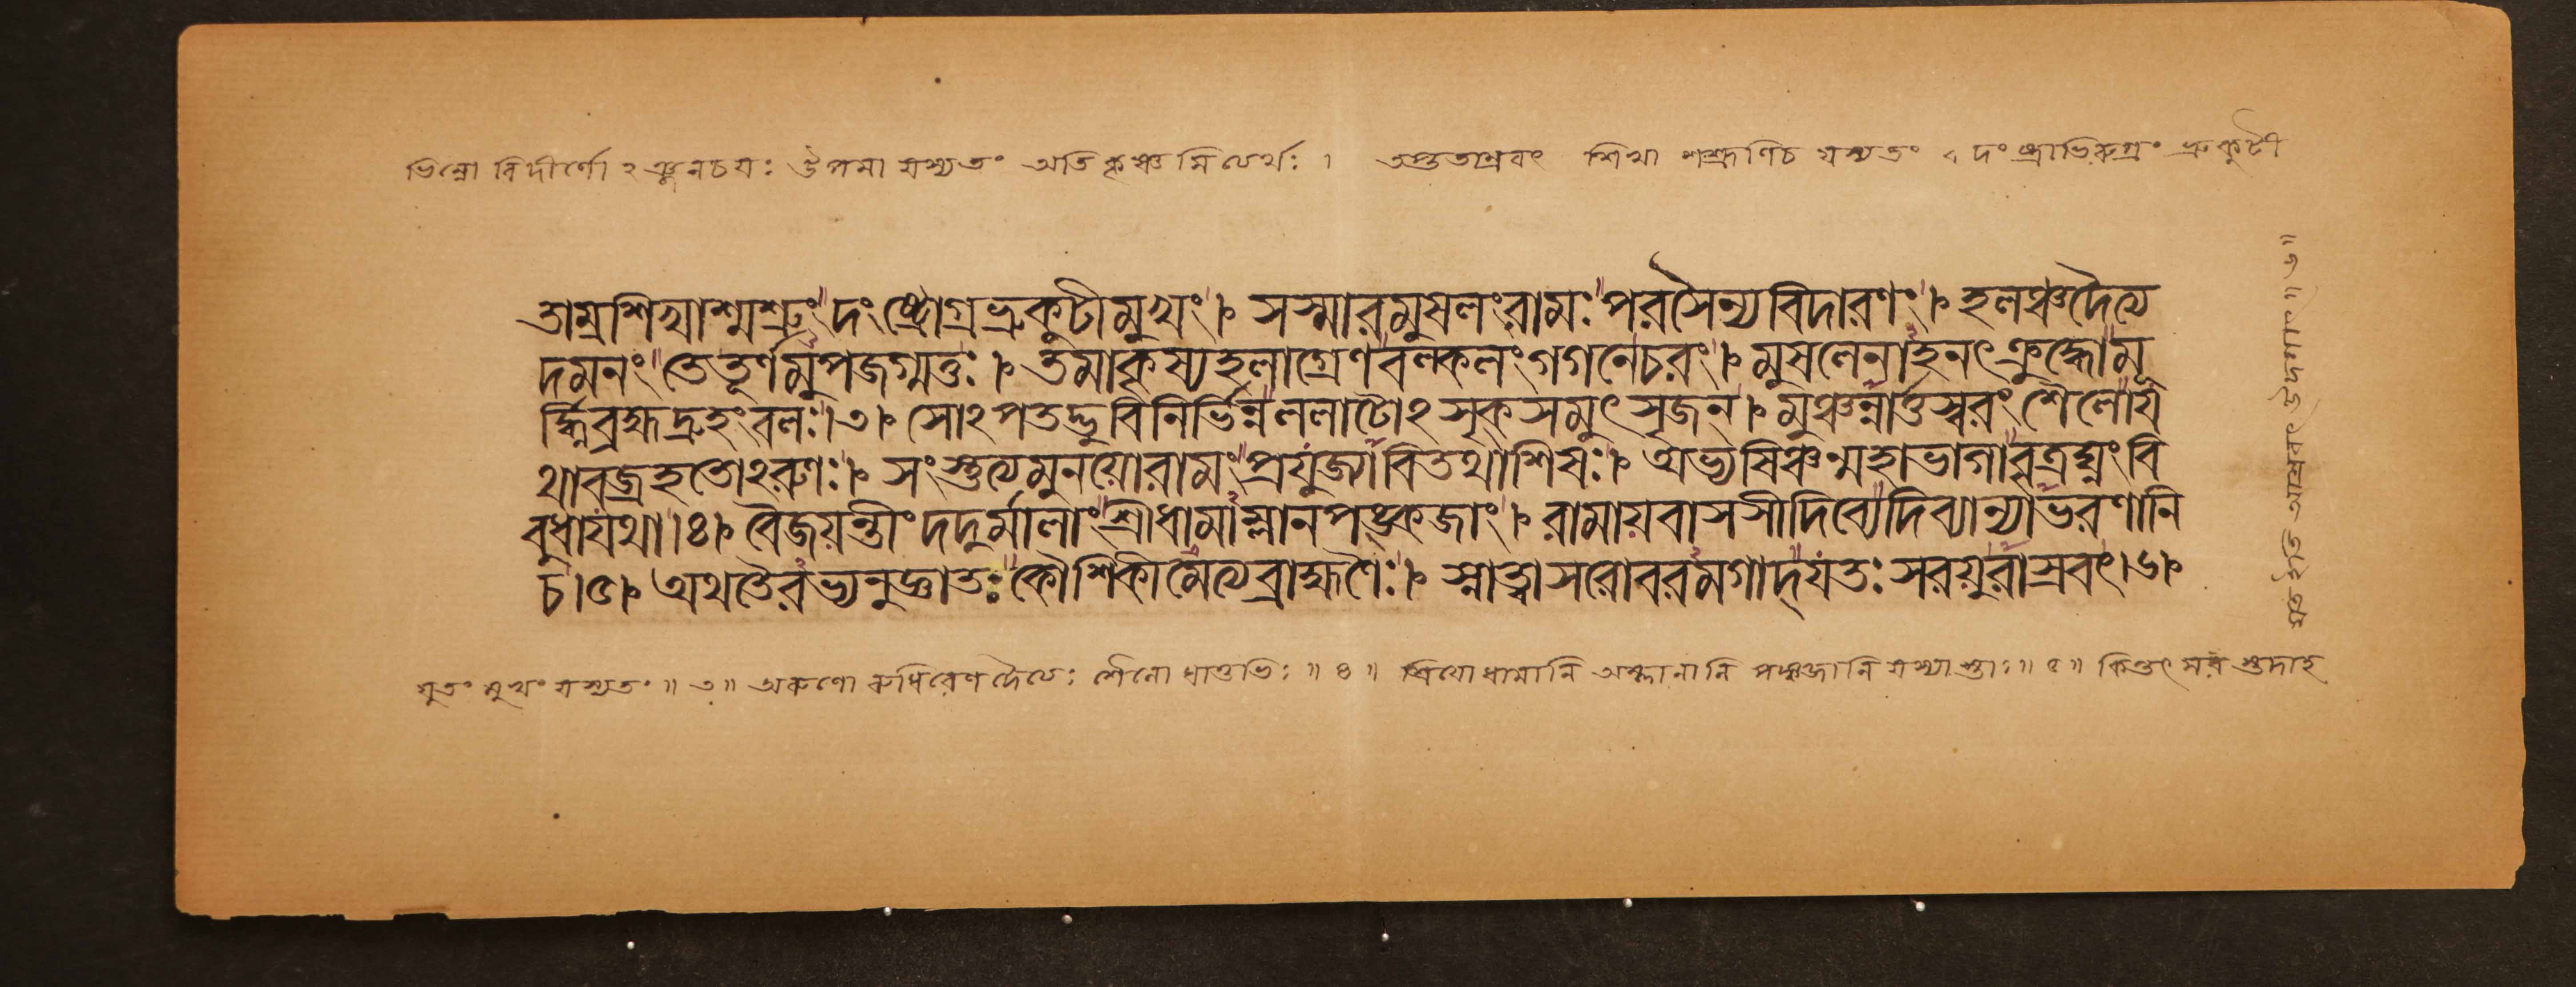 ভিন্নো বিদীর্ণো ঽঞ্জনচয়ঃ উপমা যস্যতং অতিকৃষ্ণমিত্যর্থঃ । তপ্ততাম্রবৎ শিখা শ্মশ্রূণিচ যস্যতং । দংষ্ট্রাভিরুগ্রং ভ্রুকুটী
তাম্রশিখাশ্মশ্রুং দংষ্ট্রোগ্রভ্রুকুটীমুখং । সস্মারমুষলংরামঃ পরসৈন্যবিদারণং । হলঞ্চদৈত্য
দমনং তেতূর্ণমুপজগ্মতুঃ । তমাকৃষ্যহলাগ্রেণবল্কলংগগনেচরং । মুষলেনাহনৎক্রুদ্ধোমূ
র্দ্ধ্নিব্রহ্মদ্রুহংবলঃ।৩। সোঽপতদ্ভুবিনির্ভিন্নললাটোঽসৃকসমুৎসৃজন্ । মুঞ্চন্নার্ত্তস্বরং শৈলোয
থাবজ্রহতোঽরুণঃ । সংস্তুত্যমুনয়োরামং প্রযুজ্যাবিতথাশিষঃ । অভ্যষিঞ্চন্মহাভাগাবৃত্রঘ্নংবি
বুধাযথা।৪। বৈজয়ন্তীংদদুর্মালাং শ্রীধামাম্লানপঙ্কজাং । রামায়বাসসীদিব্যেদিব্যান্যাভরণানি
চ।৫। অথতৈরভ্যনুজ্ঞাতঃ কৌশিকীমেত্যব্রাহ্মণৈঃ । স্নাত্বাসরোবরমগাদ্যতঃ সরয়ুরাস্রবৎ।৬।
যুতং মুখং যস্যতং ॥ ৩ ॥ অরুণো রুধিরেণদৈত্যঃ শৈলো ধাতুভিঃ ॥ ৪ ॥ শ্রিয়ো ধামানি অম্লানানি পঙ্কজানি যস্যাস্তাং ॥ ৫ ॥ কিন্তৎ সর স্তদাহ
যত ইতি আস্রবৎ উদগাৎ ॥ ৬ ॥